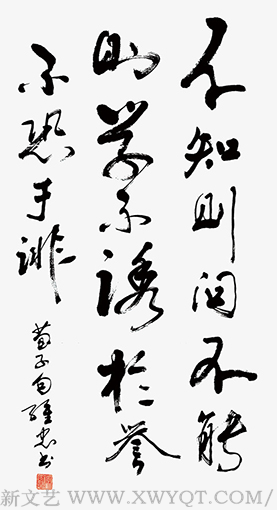 不知则问不能
则学不诱於誉
不恐于诽
荀子句 忠书
新文艺 WWW.XWYQT.COM